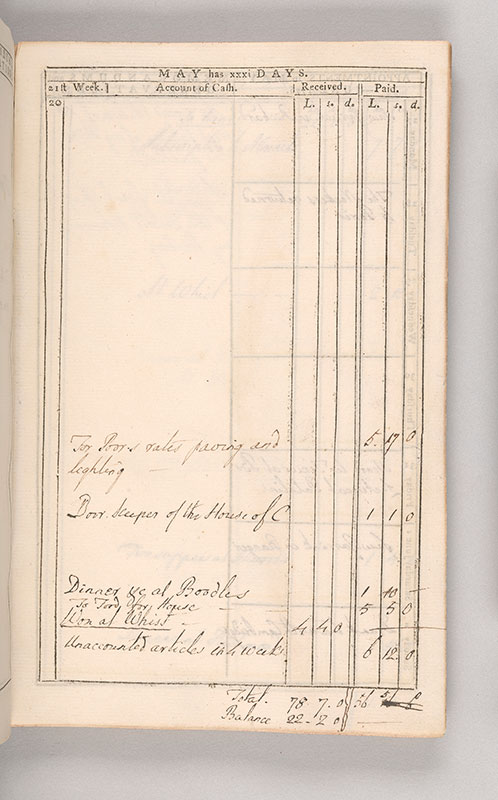 MAY has xxxi DAYS.
21st Week.] Account of Cash. Received. Paid.
L. s. d. L. s. d.
20
For Poor's rates paving and 5 17 0
leghting —
Door keeper of the House of C 1 1 0
Dinner &c at Boodles 1 10 —
To Ford for House — 5 5 0
Won at Whist — 4 4 0
Unaccounted articles in 4 weeks 6 12 0
Total. 78 7 0 56
Balance 22 - 2 0